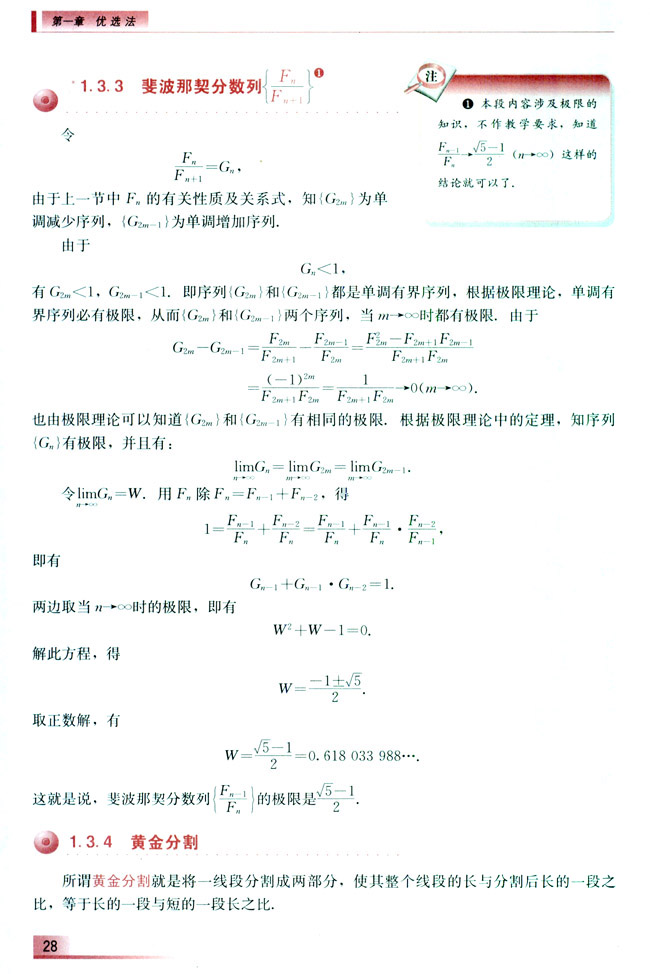 第一章 优选法
*1.3.3 斐波那契分数列{F_n/F_{n+1}}❶
注
❶ 本段内容涉及极限的
知识，不作教学要求，知道
F_{n-1}/F_n→(√5-1)/2 (n→∞) 这样的
结论就可以了．
令
F_n/F_{n+1}=G_n，
由于上一节中 F_n 的有关性质及关系式，知{G_{2m}}为单
调减少序列，{G_{2m-1}}为单调增加序列．
由于
G_n<1，
有 G_{2m}<1，G_{2m-1}<1．即序列{G_{2m}}和{G_{2m-1}}都是单调有界序列，根据极限理论，单调有
界序列必有极限，从而{G_{2m}}和{G_{2m-1}}两个序列，当 m→∞时都有极限．由于
G_{2m}-G_{2m-1}=F_{2m}/F_{2m+1}-F_{2m-1}/F_{2m}=(F_{2m}^2-F_{2m+1}F_{2m-1})/(F_{2m+1}F_{2m})
=(-1)^{2m}/(F_{2m+1}F_{2m})=1/(F_{2m+1}F_{2m})→0(m→∞)．
也由极限理论可以知道{G_{2m}}和{G_{2m-1}}有相同的极限．根据极限理论中的定理，知序列
{G_n}有极限，并且有：
lim_{n→∞}G_n=lim_{m→∞}G_{2m}=lim_{m→∞}G_{2m-1}．
令lim_{n→∞}G_n=W．用 F_n 除 F_n=F_{n-1}+F_{n-2}，得
1=F_{n-1}/F_n+F_{n-2}/F_n=F_{n-1}/F_n+F_{n-1}/F_n·F_{n-2}/F_{n-1}，
即有
G_{n-1}+G_{n-1}·G_{n-2}=1．
两边取当 n→∞时的极限，即有
W²+W-1=0．
解此方程，得
W=(-1±√5)/2．
取正数解，有
W=(√5-1)/2=0.618 033 988…．
这就是说，斐波那契分数列{F_{n-1}/F_n}的极限是(√5-1)/2．
1.3.4 黄金分割
所谓黄金分割就是将一线段分割成两部分，使其整个线段的长与分割后长的一段之
比，等于长的一段与短的一段长之比．
28